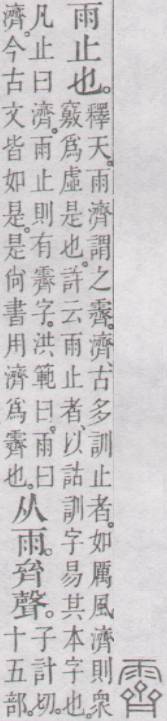 霽
雨止也。
釋天。雨濟謂之霽。濟古多訓止者。如厲風濟則衆
竅爲虛是也。許云雨止者、以詁訓字易其本字也
凡止曰濟。雨止則有霽字。洪範曰。雨曰
濟。今古文皆如是。是尚書用濟爲霽也。
从雨。齊聲。
子計切。
十五部。